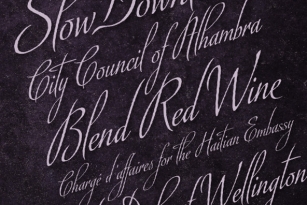 Slow Down
City Council of Alhambra
Blend Red Wine
Chargé d'affaires for the Haitian Embassy
Wellington